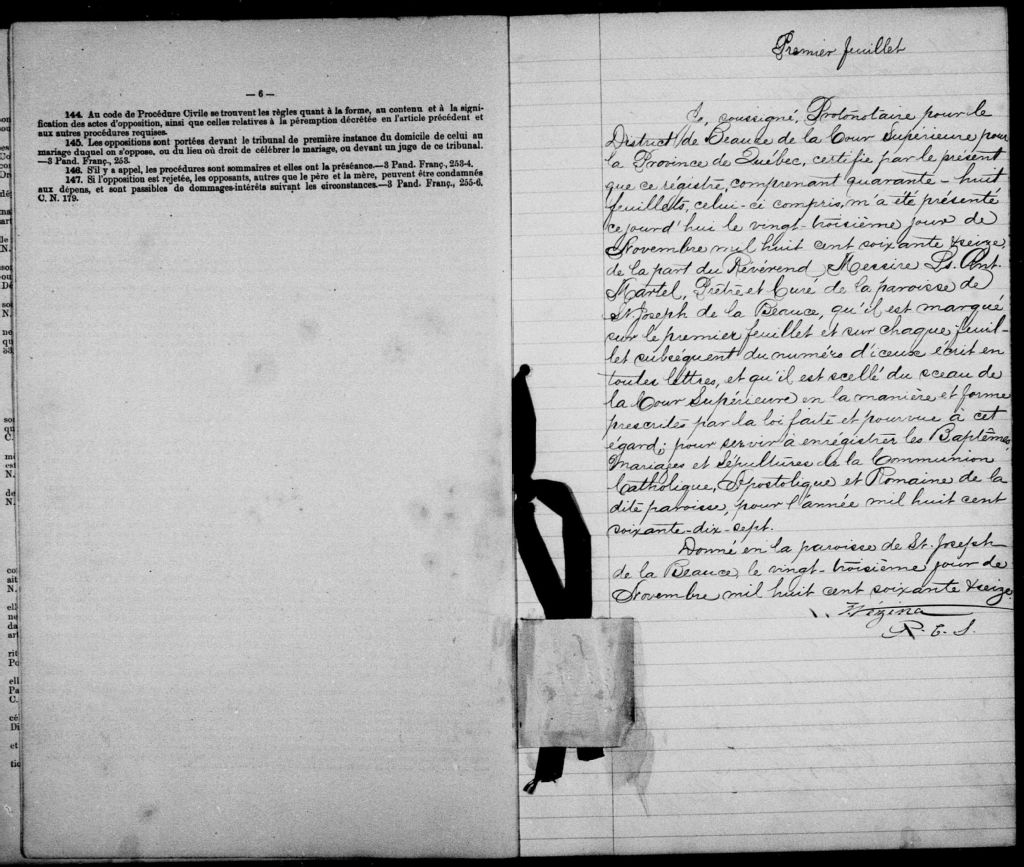 — 6 —
144. Au code de Procédure Civile se trouvent les règles quant à la forme, au contenu et à la signi-
fication des actes d'opposition, ainsi que celles relatives à la péremption décrétée en l'article précédent et
aux autres procédures requises.
145. Les oppositions sont portées devant le tribunal de première instance du domicile de celui au
mariage duquel on s'oppose, ou du lieu où droit de célébrer le mariage, ou devant un juge de ce tribunal.
—3 Pand. Franç., 253.
146. S'il y a appel, les procédures sont sommaires et elles ont la préséance.—3 Pand. Franç., 253-4.
147. Si l'opposition est rejetée, les opposants, autres que le père et la mère, peuvent être condamnés
aux dépens, et sont passibles de dommages-intérêts suivant les circonstances.—3 Pand. Franç., 255-6.
C. N. 179.
Premier feuillet
Je, soussigné, Protonotaire pour le
District de Beauce de la Cour Supérieure pour
la Province de Québec, certifie par le présent
que ce régistre, comprenant quarante-huit
feuillets, celui-ci compris, m'a été présenté
ce jourd'hui le vingt-troisième jour de
Novembre mil huit cent soixante & seize
de la part du Révérend Messire Ls. Ant.
Martel, Prêtre et Curé de la paroisse de
St. Joseph de la Beauce, qu'il est marqué
sur le premier feuillet et sur chaque feuil-
let subséquent du numéro d'iceux écrit en
toutes lettres, et qu'il est scellé du sceau de
la Cour Supérieure en la manière et forme
prescrites par la loi faite et pourvue à cet
égard; pour servir à enrégistrer les Baptêmes,
Mariages et Sépultures de la Communion
Catholique, Apostolique et Romaine de la
dite paroisse, pour l'année mil huit cent
soixante-dix-sept.
Donné en la paroisse de St. Joseph
de la Beauce, le vingt-troisième jour de
Novembre mil huit cent soixante & seize.
Vézina
P. C. S.